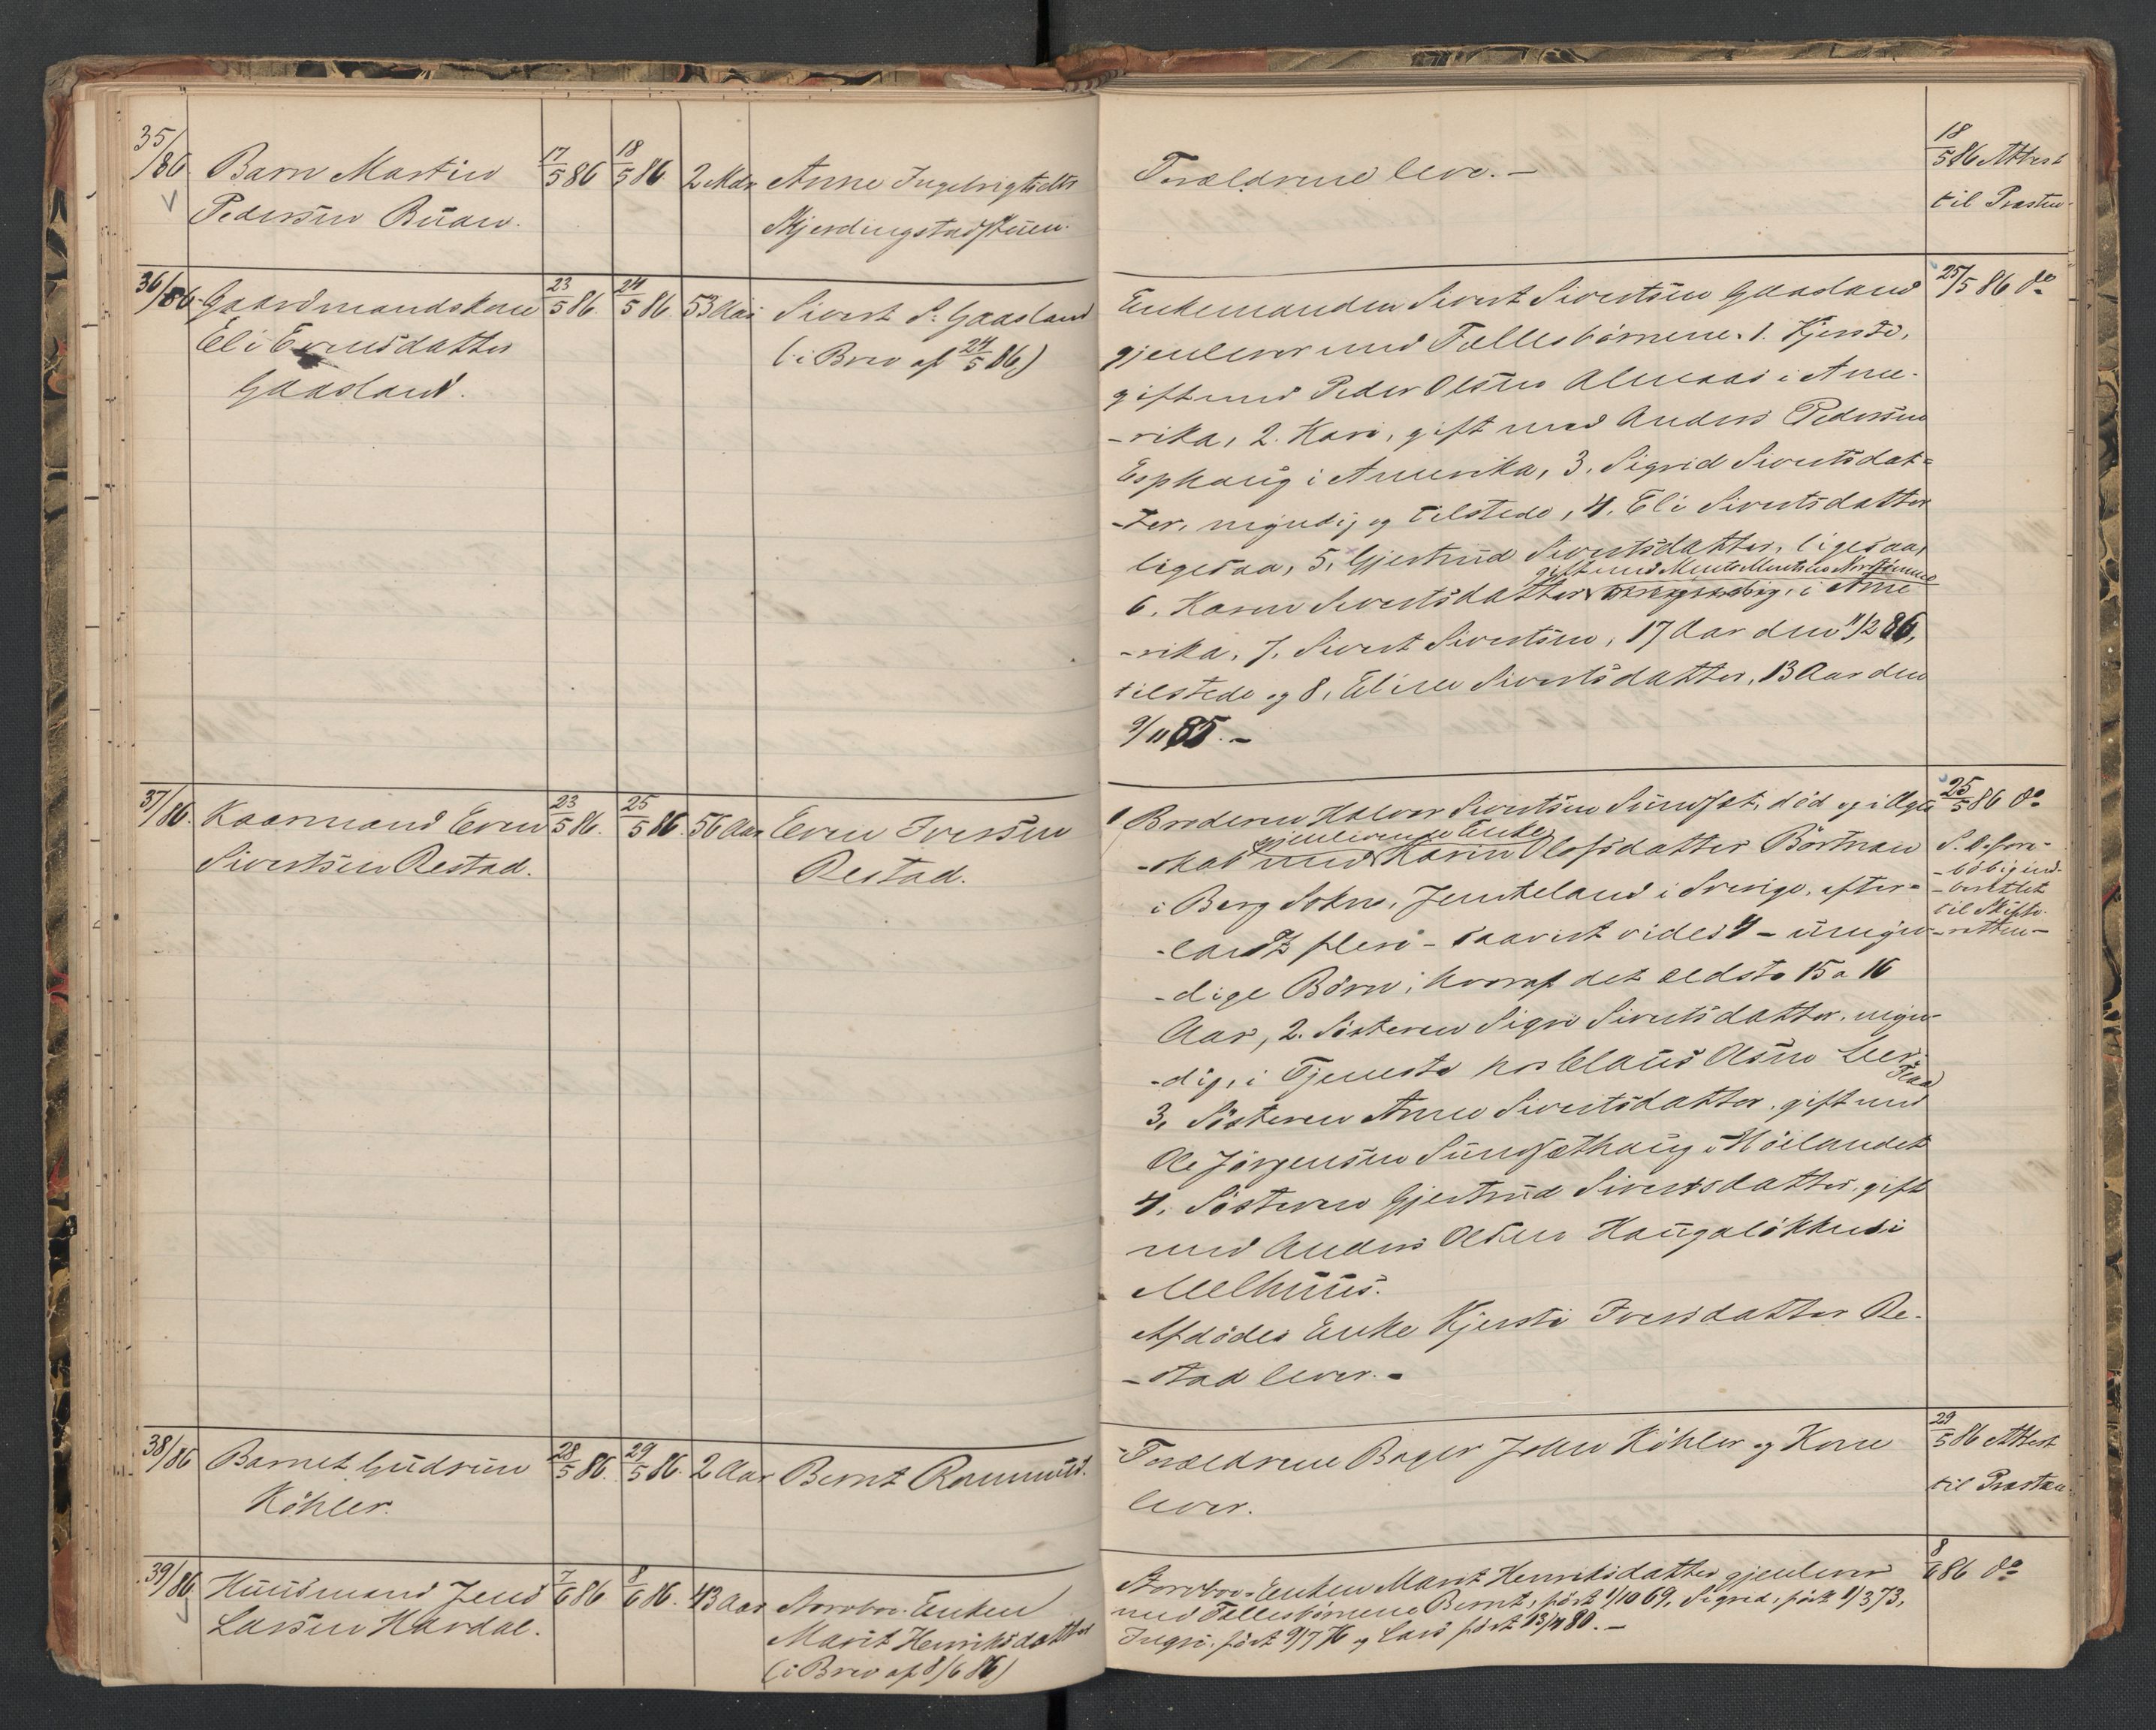 35/86 Barn Martin 17/5 86 18/5 86 2 Mdr Anne Ingebrigtsdtr Forældrene lever. — 18/5 86 Attest
Pedersen Buan. Skjerdingstadstuen. til Præsten.
36/86. Gaardmandskone 23/5 86. 24/5 86. 53 Aar Sivert S. Gaasland Enkemanden Sivert Sivertsen Gaasland 25/5 86 do
Eli Evensdatter (i Brev af 24/5 86) gjenlever med Fællesbørnene. 1. Kjersti,
Gaasland. gift med Peder Olsen Almaas i Ame-
-rika, 2. Kari, gift med Anders Pedersen
Esphaug i Amerika, 3. Sigrid Sivertsdat-
-ter, myndig og tilstede, 4. Eli Sivertsdatter
ligesaa, 5. Gjertrud Sivertsdatter, ligesaa,
gift med
6. Karen Sivertsdatter i Ame
-rika, 7. Sivert Sivertsen, 17 Aar den 11/2 86,
tilstede og 8. Eline Sivertsdatter, 13 Aar den
9/11 85. —
37/86. Kaarmand Even 23/5 86. 25/5 86. 56 Aar Even Iversen 1 Broderen Halvor Sivertsen Sundset, død og i Ægte 25/5 86 do
gjenlevende Enke
Sivertsen Restad. Restad. -skab med Karin Olofsdatter Börtnan S. D. fore-
i Berg Sokn, Jemteland i Sverige, efter- -löbig ind-
-berettet
-ladt flere - saavidt vides 4 - umyn- til Skifte-
-retten —
-dige Børn, hvoraf det ældste 15 a 16
Aar, 2. Søsteren Sigri Sivertsdatter, myn-
-dig, i Tjeneste hos Claus Olsen Leer
3. Søsteren Anne Sivertsdatter, gift med
Ole Jörgensen Sundsethaug i Höilandet
4. Søsteren Gjertrud Sivertsdatter, gift
med Anders Olsen Haugalökken i
Melhuus.
Afdødes Enke Kjersti Iversdatter Re-
-stad lever. —
38/86 Barnet Gudrun 28/5 86. 29/5 86. 2 Aar Bernt Rammus. Forældrene Bager John Köhler og Kone 29/5 86 Attest
Köhler. lever. til Præsten.
39/86 Huusmand Jens 7/6 86 8/6 86. 43 Aar Storbo. Enken Storbo. Enken Marit Henriksdatter gjenlever 8/6 86 do
Larsen Hardal. Marit Henriksdatter med Fællesbørnene Bernt, født 1/10 69, Sigrid, født 1/3 73,
(i Brev af 8/6 86) Ingri, født 9/7 76 og Lars født 13/4 80. —